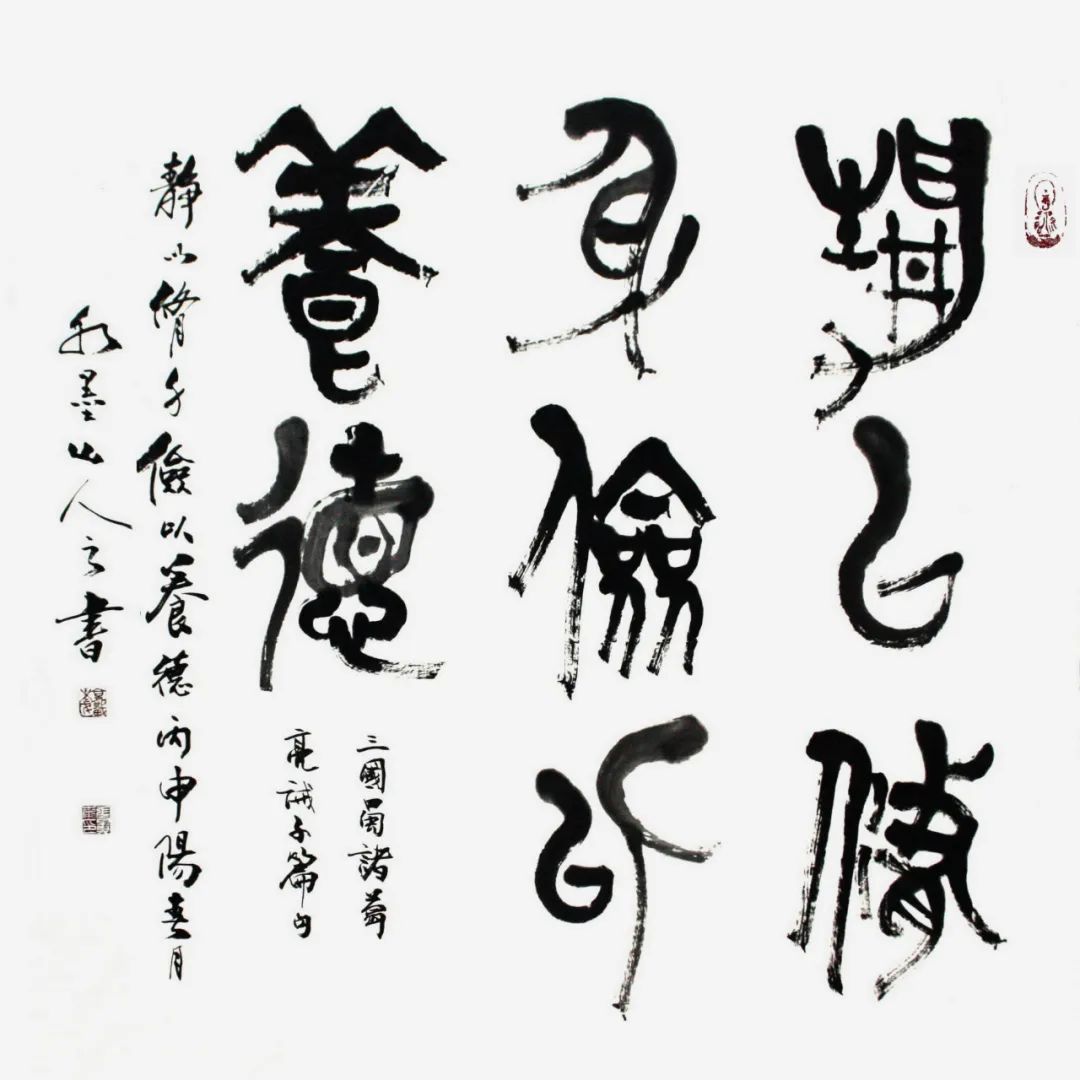 靜㠯脩
身儉以
養德
三國蜀諸葛
亮誡子篇句
靜以脩身儉以養德丙申陽春月
墨山人之書